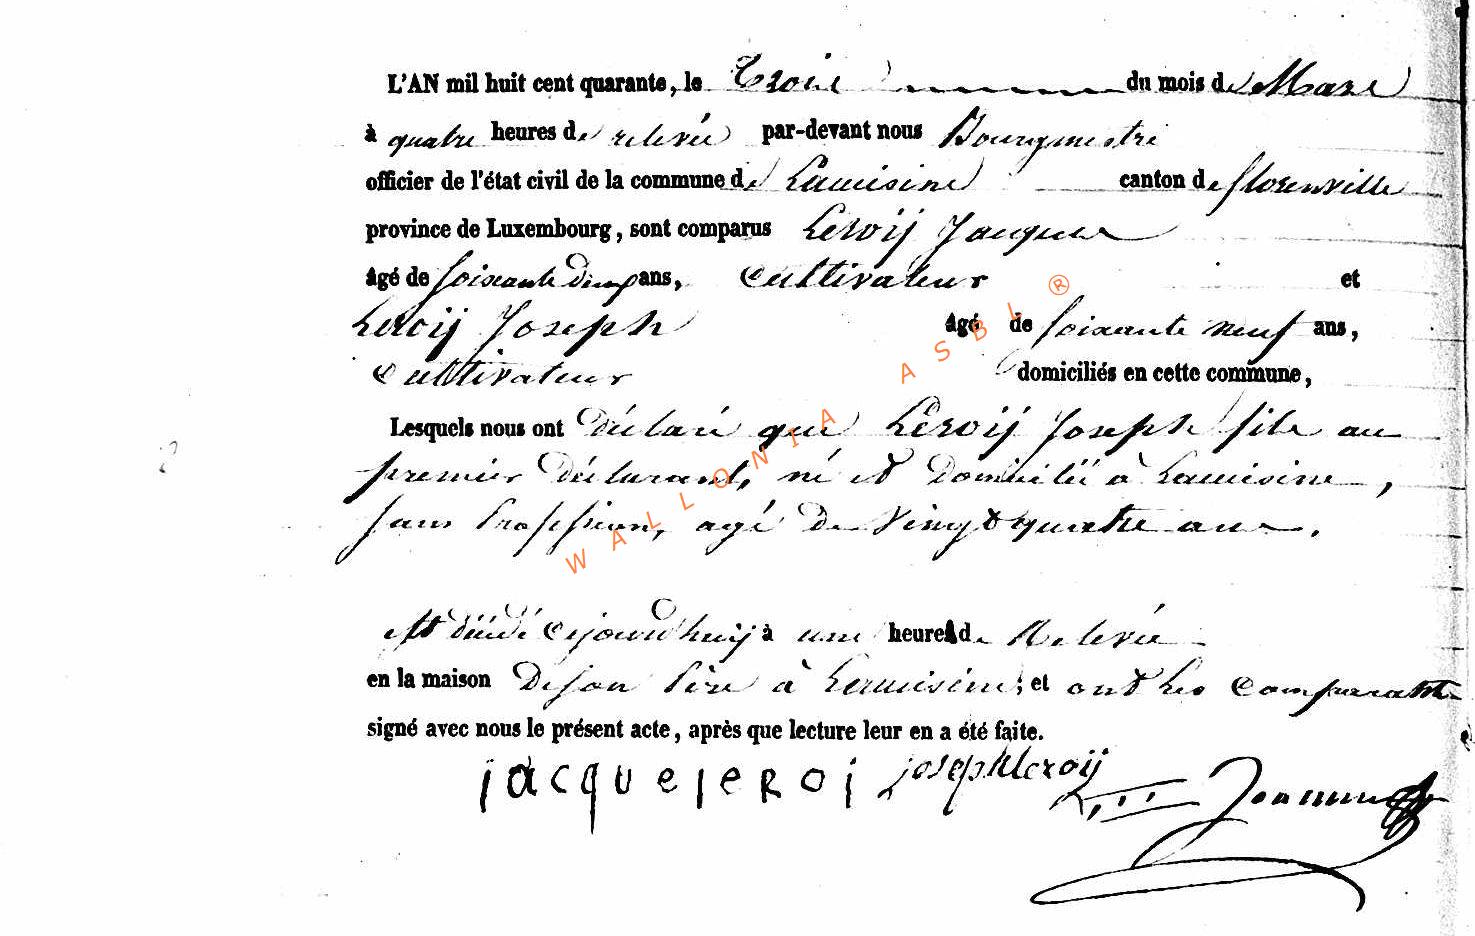 L'AN mil huit cent quarante, le Trois du mois de Mars
à quatre heures de relevée par-devant nous Bourgmestre
officier de l'état civil de la commune de Lacuisine canton de florenville
province de Luxembourg, sont comparus Leroij Jacques
âgé de soixante deux ans, Cultivateur et
Leroij Joseph âgé de soixante neuf ans,
Cultivateur domiciliés en cette commune,
Lesquels nous ont déclaré que Leroij Joseph fils au
premier Déclarant, né et Domicilié à Lacuisine,
sans Profession, agé de Vingt quatre ans.
est décédé cejourd'huij à une heure de Relevée
en la maison De son Père à Lacuisine; et ont les Comparants
signé avec nous le présent acte, après que lecture leur en a été faite.
jacque leroi joseph leroij
WALLONIA ASBL ®